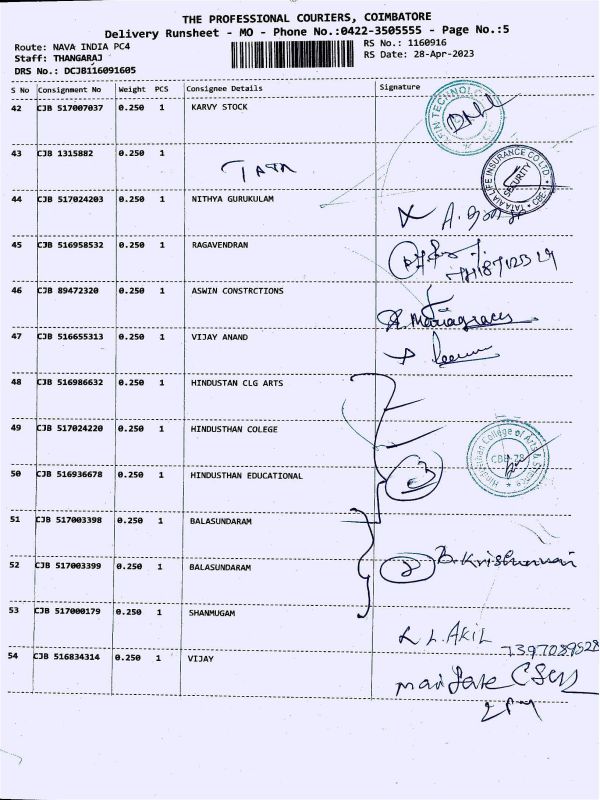 THE PROFESSIONAL COURIERS, COIMBATORE
Delivery Runsheet - MO - Phone No.:0422-3505555 - Page No.:5
Route: NAVA INDIA PC4
RS No.: 1160916
Staff: THANGARAJ
RS Date: 28-Apr-2023
DRS No.: DCJB116091605
S No Consignment No Weight PCS Consignee Details Signature
42 CJB 517007037 0.250 1 KARVY STOCK
43 CJB 1315882 0.250 1
TATA
TATA AIA LIFE INSURANCE CO LTD CBE
SECURITY
44 CJB 517024203 0.250 1 NITHYA GURUKULAM
45 CJB 516958532 0.250 1 RAGAVENDRAN
46 CJB 89472320 0.250 1 ASWIN CONSTRCTIONS
47 CJB 516655313 0.250 1 VIJAY ANAND
48 CJB 516986632 0.250 1 HINDUSTAN CLG ARTS
49 CJB 517024220 0.250 1 HINDUSTHAN COLEGE
Hindusthan College of Arts & Science
CBE-28
50 CJB 516936678 0.250 1 HINDUSTHAN EDUCATIONAL
3
51 CJB 517003398 0.250 1 BALASUNDARAM
52 CJB 517003399 0.250 1 BALASUNDARAM
2
53 CJB 517000179 0.250 1 SHANMUGAM
L.AKIL
7397089528
54 CJB 516834314 0.250 1 VIJAY